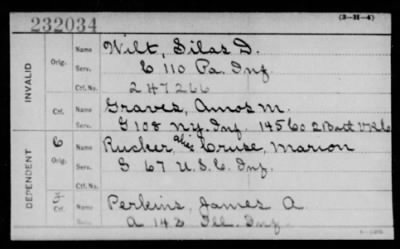 232034
(3-H-4)
INVALID
Orig.
Name Wilt, Silas D.
Serv. C 110 Pa. Inf.
Ctf. No. 247266
Ctf.
Name Graves, Amos M.
Serv. G 108 N.Y. Inf. 145 Co 2 Batt V.R.C
DEPENDENT
6
Orig.
Name Rucker Cruse, Marion
Serv. G 67 U.S.C. Inf.
Ctf. No.
Ctf.
Name Perkins, James A
Serv. A 143 Ill. Inf.